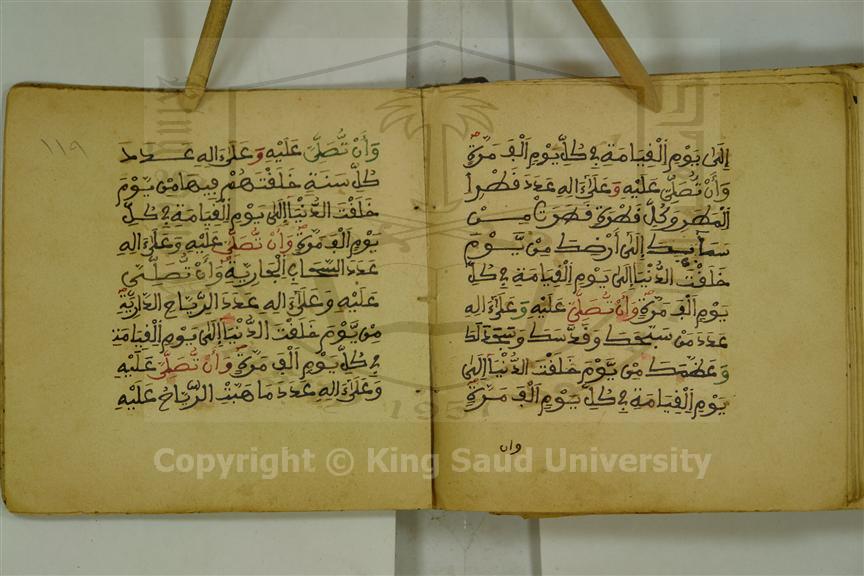 إِلَى يَوْمِ الْقِيَامَةِ فِي كُلِّ يَوْمٍ أَلْفَ مَرَّةٍ
وَأَنْ تُصَلِّيَ عَلَيْهِ وَعَلَى ءَالِهِ عَدَدَ قَطْرِ
الْمَطَرِ وَكُلِّ قَطْرَةٍ قَطَرَتْ مِنْ
سَمَائِكَ إِلَى أَرْضِكَ مِنْ يَّوْمِ
خَلَقْتَ الدُّنْيَا إِلَى يَوْمِ الْقِيَامَةِ فِي كُلِّ
يَوْمٍ أَلْفَ مَرَّةٍ وَأَنْ تُصَلِّيَ عَلَيْهِ وَعَلَى ءَالِهِ
عَدَدَ مَنْ سَبَّحَكَ وَقَدَّسَكَ وَسَجَدَ لَكَ
وَعَظَّمَكَ مِنْ يَّوْمِ خَلَقْتَ الدُّنْيَا إِلَى
يَوْمِ الْقِيَامَةِ فِي كُلِّ يَوْمٍ أَلْفَ مَرَّةٍ
وان
١١٩
وَأَنْ تُصَلِّيَ عَلَيْهِ وَعَلَى ءَالِهِ عَدَدَ
كُلِّ سَنَةٍ خَلَقْتَهُمْ فِيهَا مِنْ يَّوْمِ
خَلَقْتَ الدُّنْيَا إِلَى يَوْمِ الْقِيَامَةِ فِي كُلِّ
يَوْمٍ أَلْفَ مَرَّةٍ وَأَنْ تُصَلِّيَ عَلَيْهِ وَعَلَى ءَالِهِ
عَدَدَ السَّحَابِ الْجَارِيَةِ وَأَنْ تُصَلِّيَ
عَلَيْهِ وَعَلَى ءَالِهِ عَدَدَ الرِّيَاحِ الذَّارِيَةِ
مِنْ يَّوْمِ خَلَقْتَ الدُّنْيَا إِلَى يَوْمِ الْقِيَامَةِ
فِي كُلِّ يَوْمٍ أَلْفَ مَرَّةٍ وَأَنْ تُصَلِّيَ عَلَيْهِ
وَعَلَى ءَالِهِ عَدَدَ مَا هَبَّتْ الرِّيَاحُ عَلَيْهِ
Copyright © King Saud University
1957